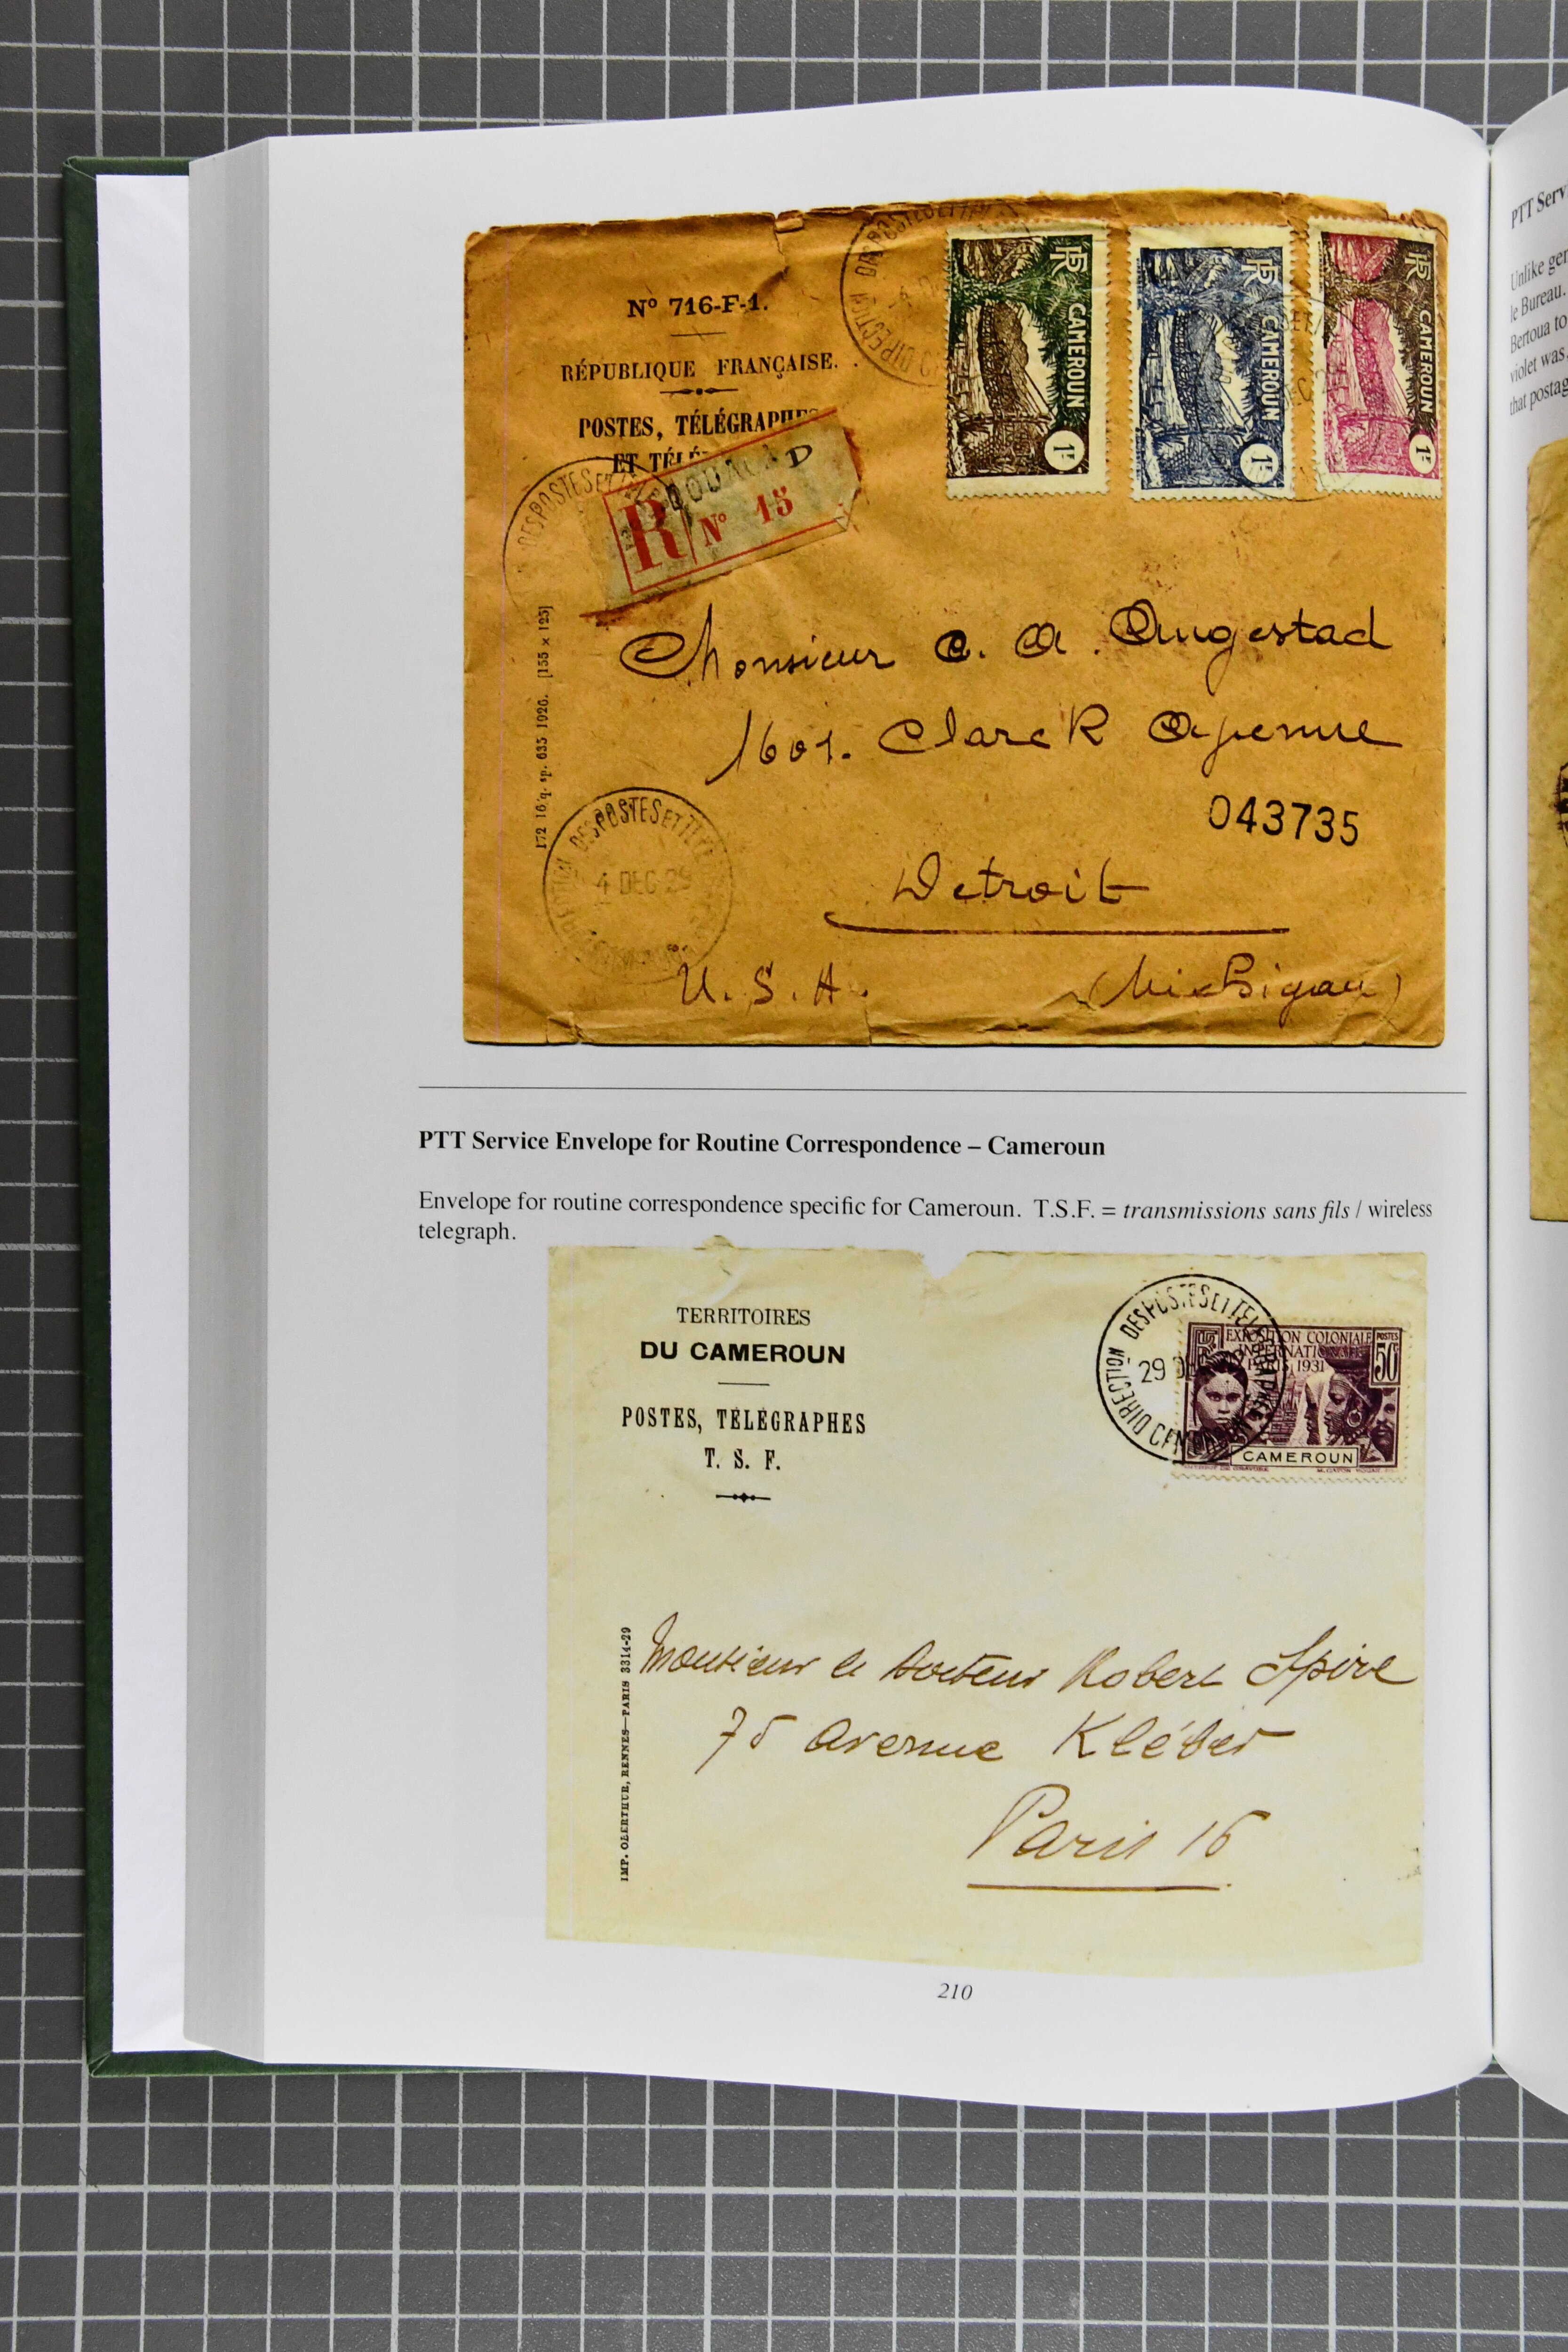 Nº 716-F-1.
RÉPUBLIQUE FRANÇAISE.
POSTES, TÉLÉGRAPHES
ET TÉLÉ
DOUALA D
R Nº 15
DES POSTES ET
DIRECTION
RF CAMEROUN 1F
RF CAMEROUN 1F
RF CAMEROUN 1F
Monsieur C. A. Augestad
1601. Clarck Avenue
043735
Detroit
U.S.A. (Michigan)
172 16 q. sp. 635 1926. [155 × 125]
DES POSTES ET TELE
4 DEC 29
PTT Service Envelope for Routine Correspondence – Cameroun
Envelope for routine correspondence specific for Cameroun. T.S.F. = transmissions sans fils / wireless
telegraph.
TERRITOIRES
DU CAMEROUN
POSTES, TÉLÉGRAPHES
T. S. F.
DIRECTION DES POSTES ET TELEGRAPHES
29 DEC
RF EXPOSITION COLONIALE POSTES
INTERNATIONALE 50c
PARIS 1931
CAMEROUN
Monsieur le Docteur Robert Spire
75 avenue Kléber
Paris 16
IMP. OBERTHUR, RENNES—PARIS 3314-29
210
PTT Serv
Unlike ger
le Bureau.
Bertoua to
violet was
that postag